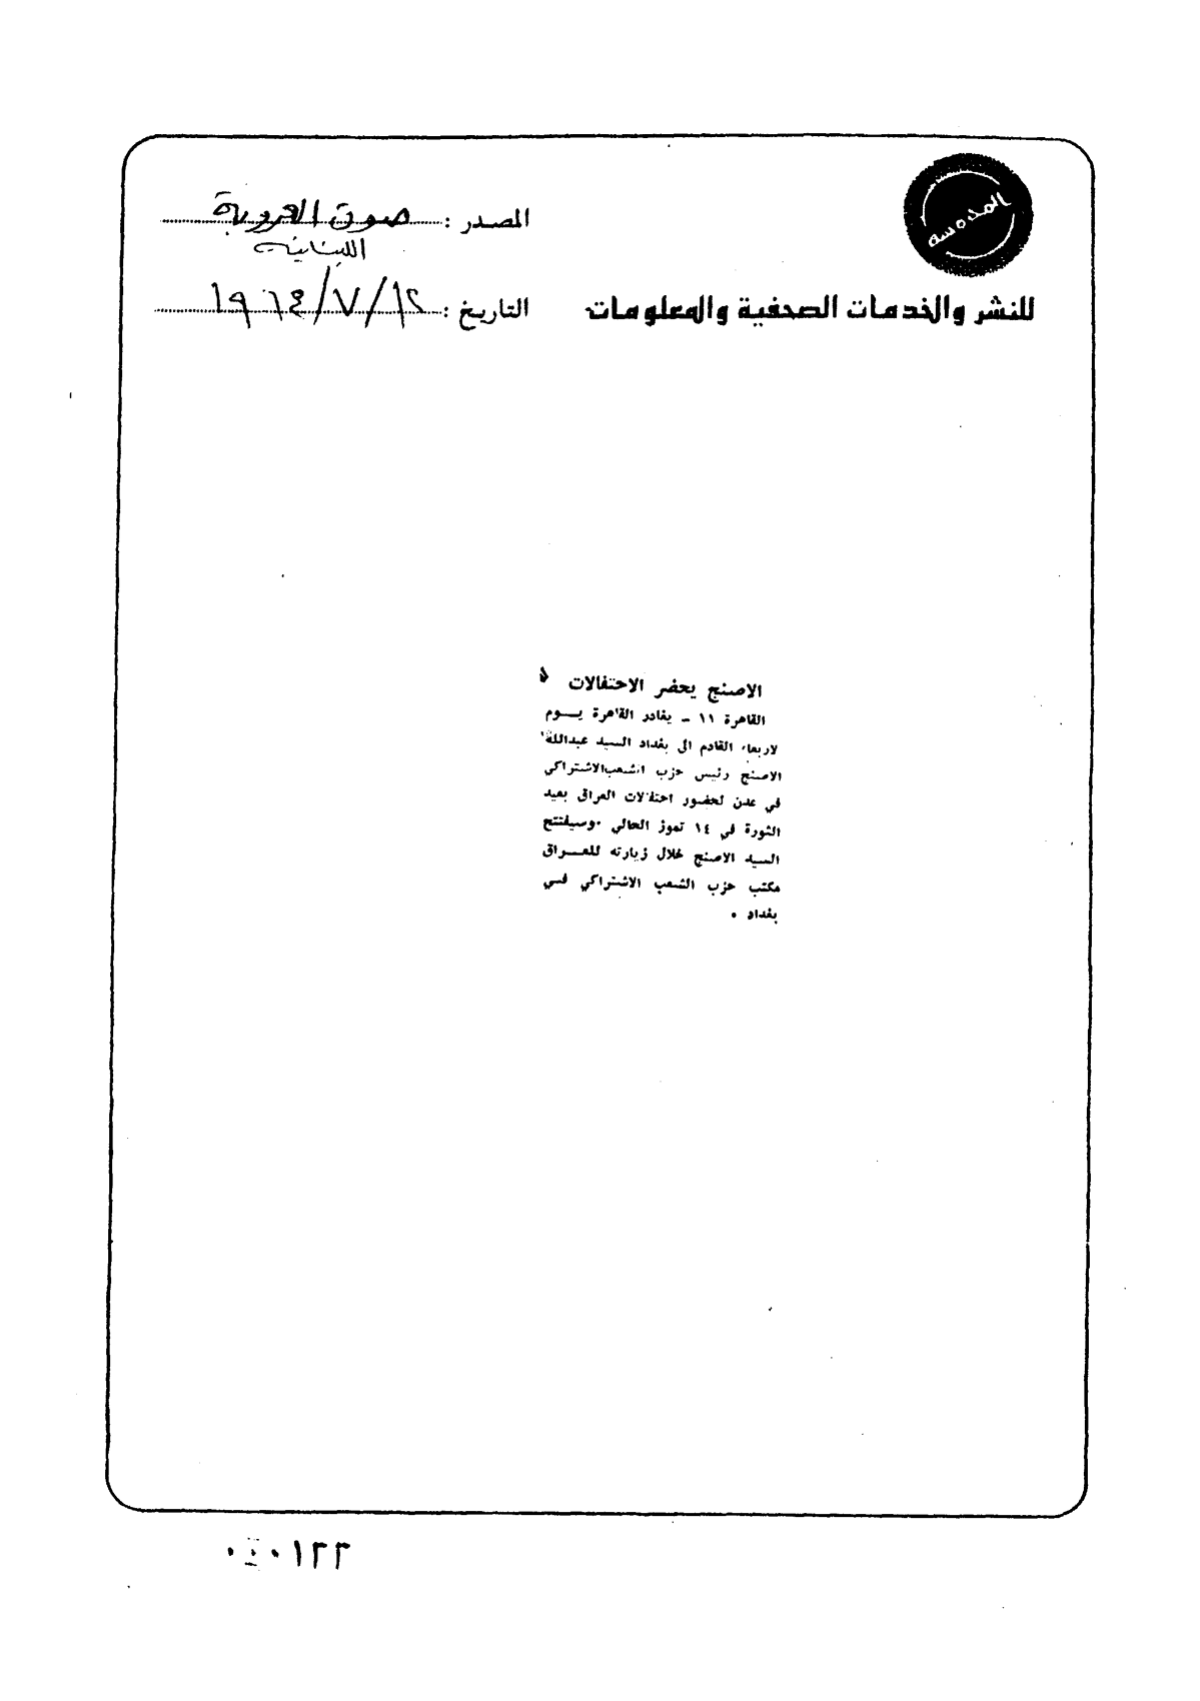 المدوسة
المصدر : صوت العروبة
اللبنانية
للنشر والخدمات الصحفية والمعلومات
التاريخ : ١٩٦٤/٧/١٢
الاصنج يحضر الاحتفالات
القاهرة ١١ ـ يغادر القاهرة يـــوم
لاربعاء القادم الى بغداد السيد عبدالله
الاصنج رئيس حزب الشعب الاشتراكي
في عدن لحضور احتفالات العراق بعيد
الثورة في ١٤ تموز الحالي ٠ وسيفتتح
السيد الاصنج خلال زيارته للعـــراق
مكتب حزب الشعب الاشتراكي فـي
بغداد ٠